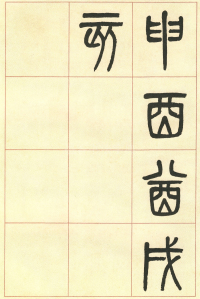 申酉酋戌
亥